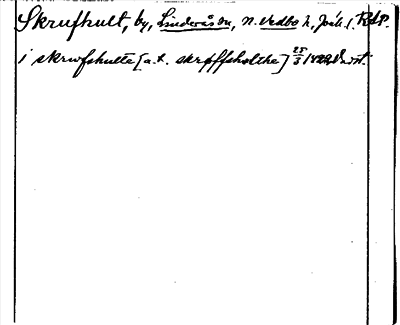 Skrufhult, by, Linderås sn, N. Vedbo h., Jönk. l. Rdsp.
i skrwfhultte [a.t. skrpffholthe] 25/3 1422 Dort.